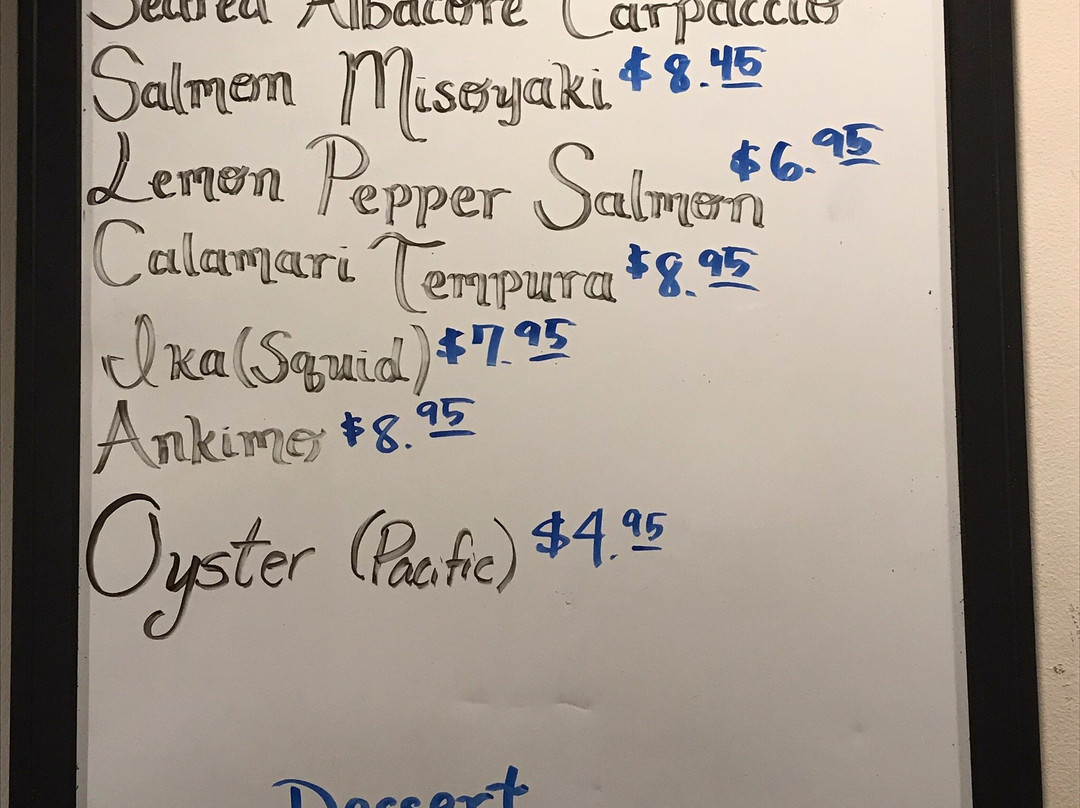 Seared Albacore Carpaccio
Salmon Misoyaki $8.45
Lemon Pepper Salmon $6.95
Calamari Tempura $8.95
Ika (Squid) $7.95
Ankimo $8.95
Oyster (Pacific) $4.95
Dessert